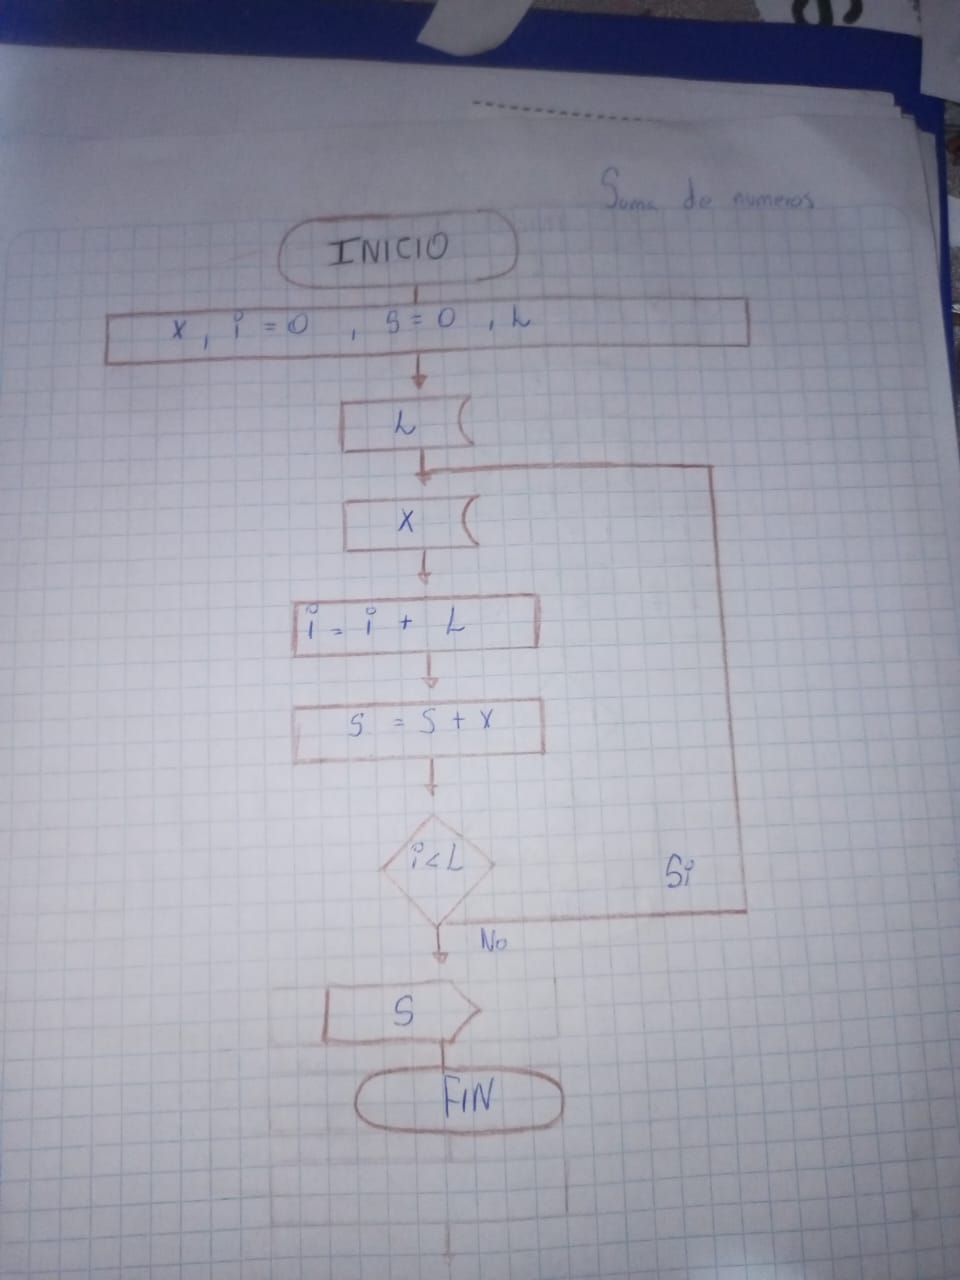 Suma de numeros
INICIO
x, i = 0, S = 0, L
L
X
i = i + L
S = S + X
i < L
Si
No
S
FIN